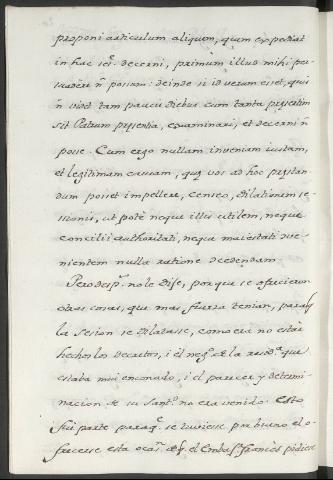 proponi articulum aliquem, quem expediat
in hac ses. decerni, primum illud mihi per
suadere ñ possum: deinde si id verum esset, qui
ñ videt tam paucis diebus cum tanta presertim
sit Patrum presentia, examinari, et decerni ñ
posse. Cum ergo nullam inveniam iustam,
et legitimam causam, quę vos ad hoc prestan
dum posset impellere, censeo, dilationem se
ssionis, ut potè neque illis utilem, neque
concilii authoritati, neque maiestati due
nientem nulla ratione decedendam.
Pero desp.s no le dise, porque se ofrecieron
otras cosas, que mas fuerza tenian, paraq
la sesion se dilatasse, como era no estár
hechos los decretos, i el neg.o de la resid.a que
estaba mui enconado, i el parecer y determi-
nacion de su Sant.d no era venido. Esto
fui parte paraq. se tuviesse por bueno el o-
frecerse esta ocas.n de q. el Embax.r Francés pidiese